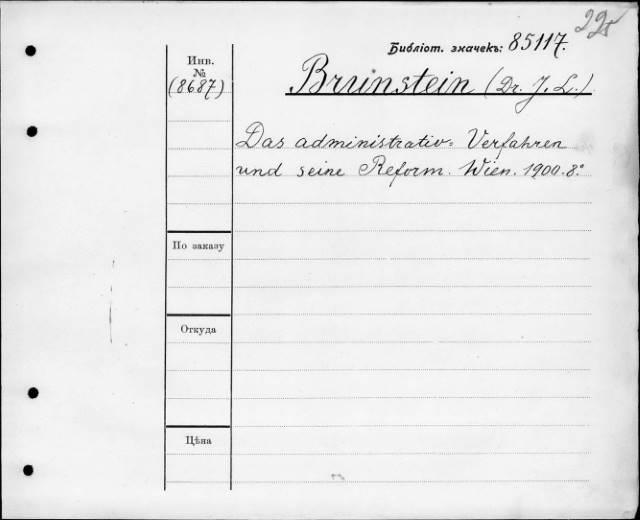 Библіот. значекъ: 85117.
Инв.
№
(8687)
Brunstein (Dr. J. L.)
Das administrativ= Verfahren
und seine Reform. Wien. 1900. 8°
По заказу
Откуда
Цѣна